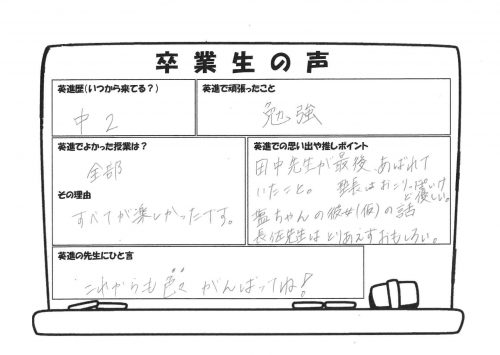 卒業生の声
英進歴(いつから来てる?)
中2
英進で頑張ったこと
勉強
英進でよかった授業は?
全部
その理由
すべてが楽しかったです。
英進での思い出や推しポイント
田中先生が最後、あばれて
いたこと。 塾長はおこりっぽいけ
ど優しい。
塩ちゃんの彼女(仮)の話
長佐先生はとりあえずおもしろい。
英進の先生にひと言
これからも色々がんばってね!